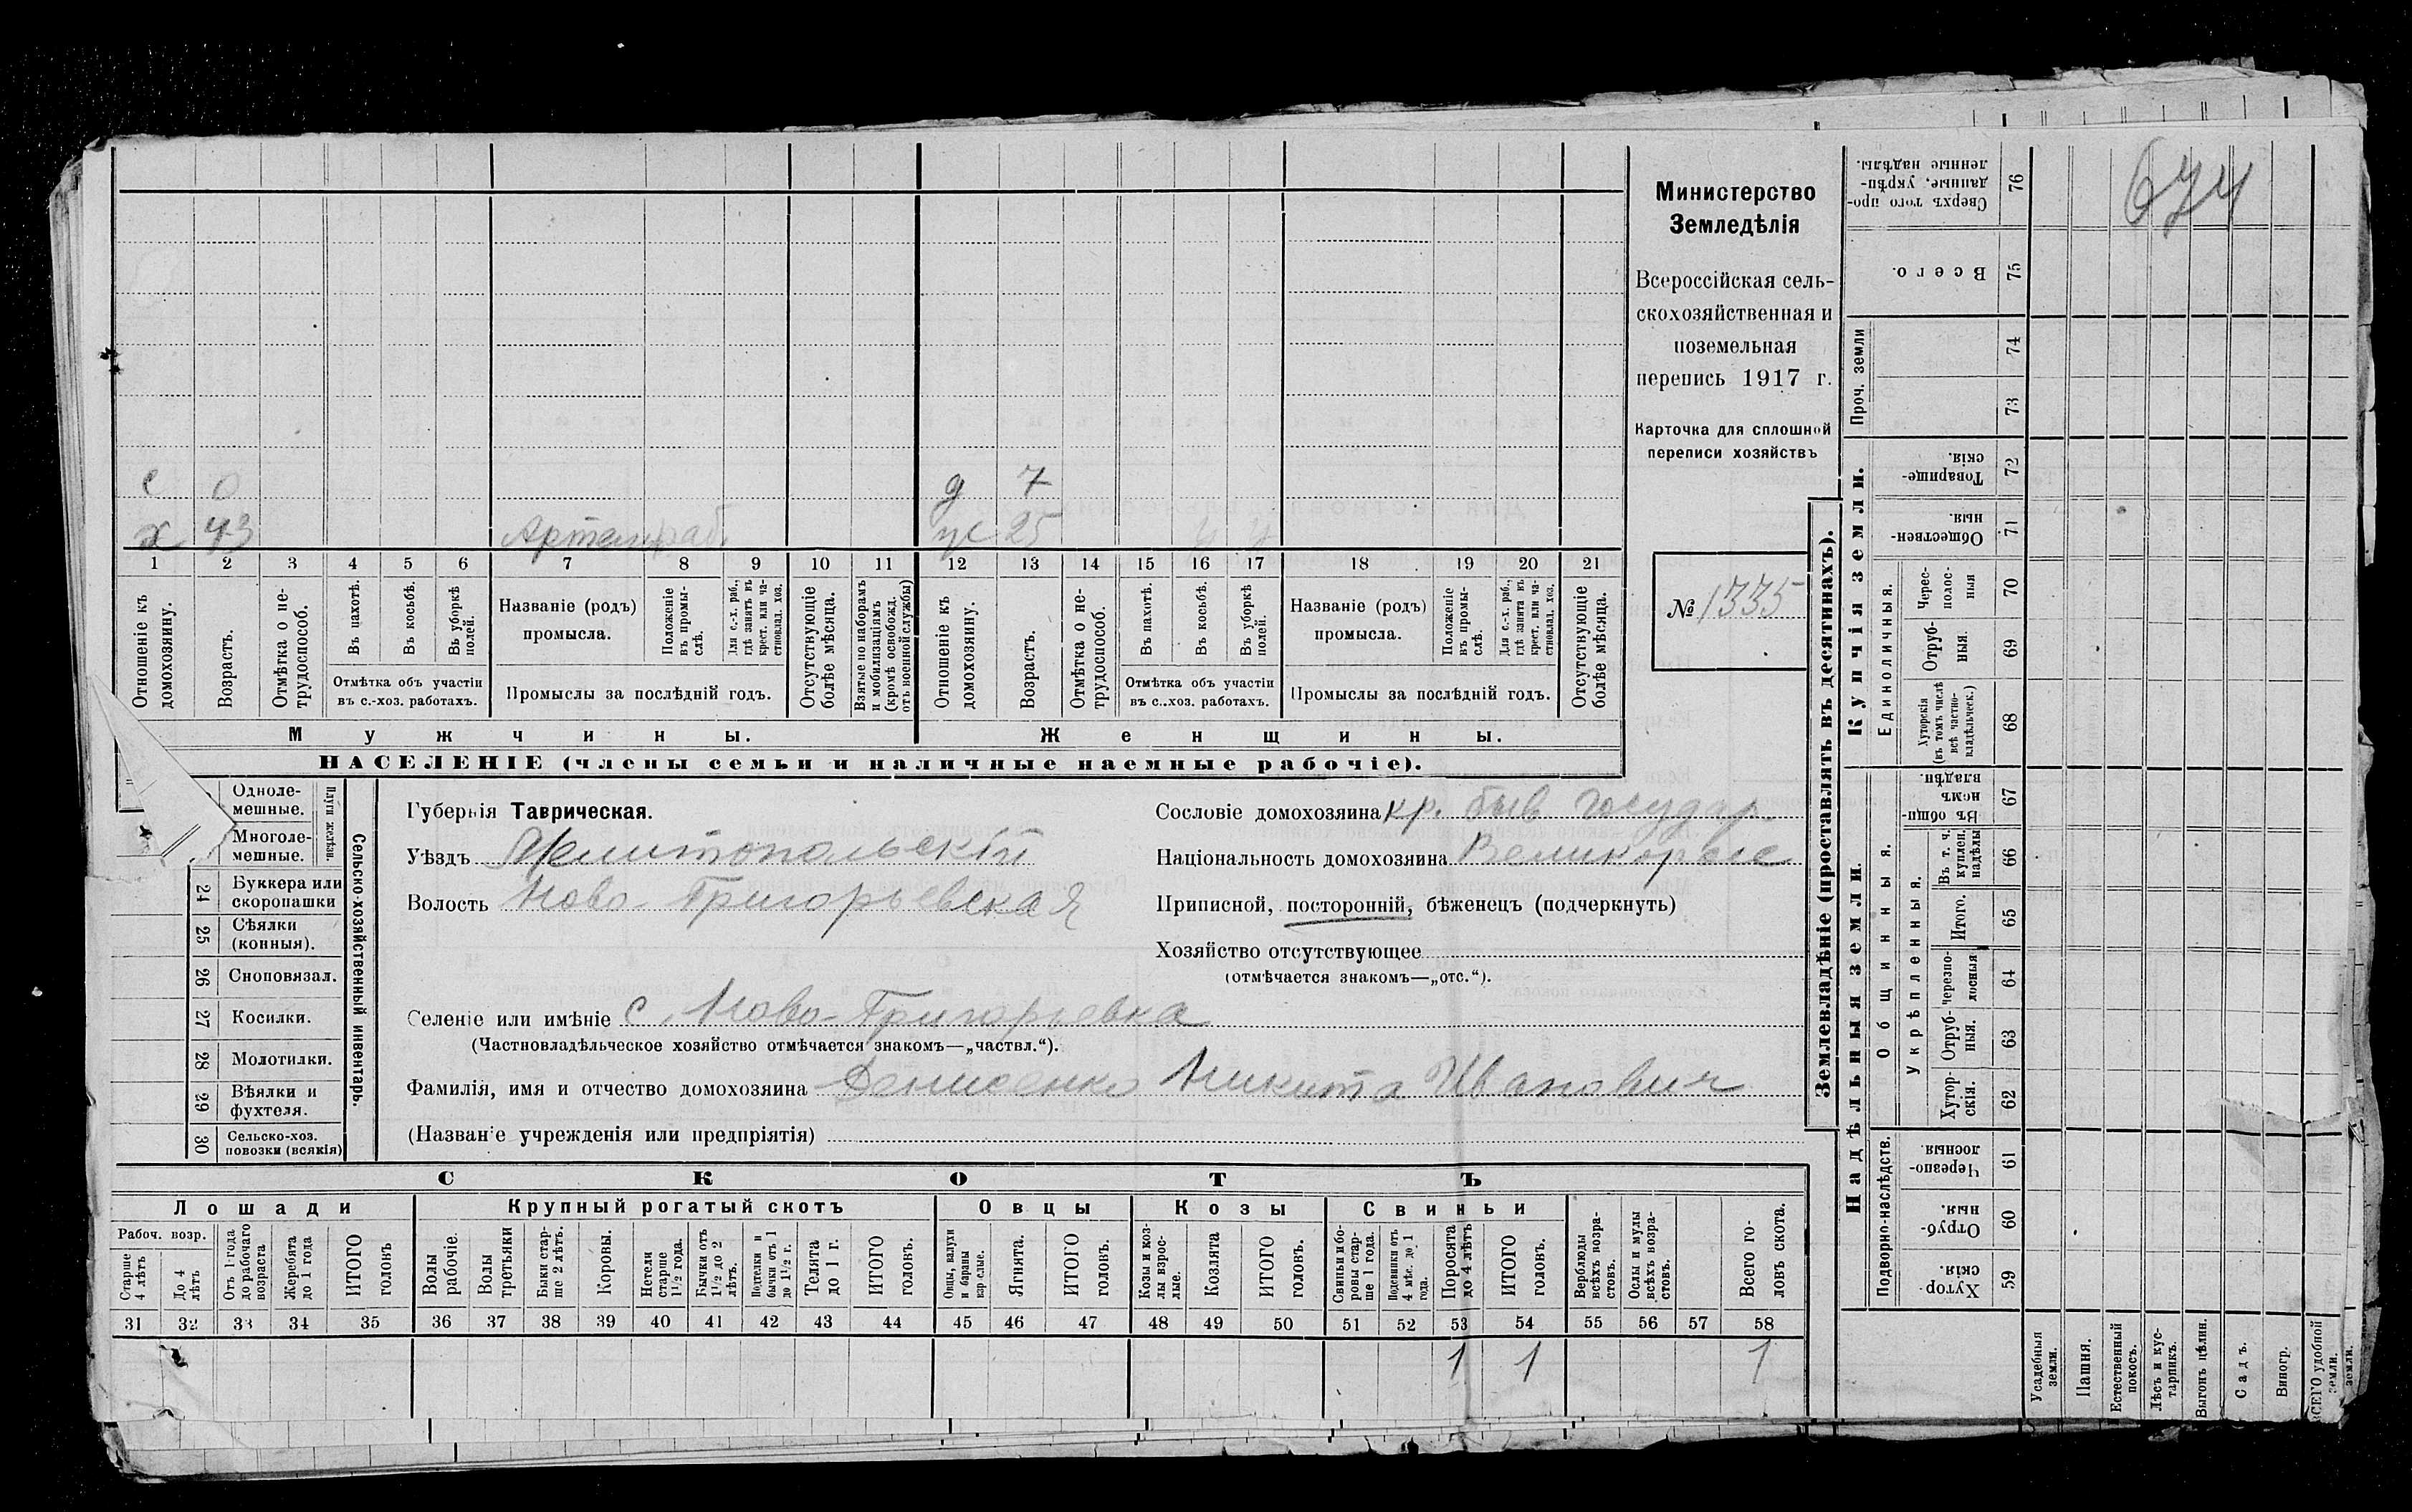 674
Министерство
Земледѣлія
Всероссійская сель-
скохозяйственная и
поземельная
перепись 1917 г.
Карточка для сплошной
переписи хозяйствъ
№ 1335
с 0 д 7
х 43 Артель раб. ж 25 ч ч
1 2 3 4 5 6 7 8 9 10 11 12 13 14 15 16 17 18 19 20 21
Отношеніе къ домохозяину.
Возрастъ.
Отмѣтка о не-трудоспособ.
Въ пахотѣ.
Въ косьбѣ.
Въ уборкѣ полей.
Отмѣтка объ участіи
въ с.-хоз. работахъ.
Названіе (родъ)
промысла.
Положеніе въ промы-слѣ.
Для с.-х. раб., гдѣ занятъ въ крест. или ча-стновлад. хоз.
Промыслы за послѣдній годъ.
Отсутствующіе болѣе мѣсяца.
Взятые по наборамъ и мобилизаціямъ (кромѣ освобожд. отъ военной службы)
Отношеніе къ домохозяину.
Возрастъ.
Отмѣтка о не-трудоспособ.
Въ пахотѣ.
Въ косьбѣ.
Въ уборкѣ полей.
Отмѣтка объ участіи
въ с.-хоз. работахъ.
Названіе (родъ)
промысла.
Положеніе въ промы-слѣ.
Для с.-х. раб., гдѣ занята въ крест. или ча-стновлад. хоз.
Промыслы за послѣдній годъ.
Отсутствующіе болѣе мѣсяца.
Мужчины. Женщины.
НАСЕЛЕНІЕ (члены семьи и наличные наемные рабочіе).
Одноле-
мешные.
Многоле-
мешные.
Плуги желѣзн.
24 Буккера или
скоропашки
25 Сѣялки
(конныя).
26 Сноповязал.
27 Косилки.
28 Молотилки.
29 Вѣялки и
фухтеля.
30 Сельско-хоз.
повозки (всякія)
Сельско-хозяйственный инвентарь.
Губернія Таврическая.
Уѣздъ Мелитопольскій
Волость Ново-Григорьевская
Сословіе домохозяина кр. быв. государ.
Національность домохозяина Великорос
Приписной, посторонній, бѣженецъ (подчеркнуть)
Хозяйство отсутствующее
(отмѣчается знакомъ—„отс.“).
Селеніе или имѣніе с. Ново-Григорьевка
(Частновладѣльческое хозяйство отмѣчается знакомъ—„частвл.“).
Фамилія, имя и отчество домохозяина Денисенко Никита Иванович
(Названіе учрежденія или предпріятія)
СКОТЪ
Лошади Крупный рогатый скотъ Овцы Козы Свиньи
Рабоч. возр.
Старше 4 лѣтъ
До 4 лѣтъ
Отъ 1 года до рабочаго возраста
Жеребята до 1 года
ИТОГО головъ
Волы рабочіе.
Волы третьяки
Быки стар-ше 2 лѣтъ.
Коровы.
Нетели старше 1½ года.
Бычки отъ 1½ до 2 лѣтъ.
Подтелки и бычки отъ 1 до 1½ г.
Телята до 1 г.
ИТОГО головъ.
Овцы, валухи и бараны взрослые.
Ягнята.
ИТОГО головъ.
Козы и коз-лы взрос-лые.
Козлята
ИТОГО головъ.
Свиньи и бо-ровы стар-ше 1 года.
Подсвинки отъ 4 мѣс. до 1 года.
Поросята до 4 лѣтъ
ИТОГО головъ.
Верблюды всѣхъ возра-стовъ.
Ослы и мулы всѣхъ возра-стовъ.
Всего го-ловъ скота.
31 32 33 34 35 36 37 38 39 40 41 42 43 44 45 46 47 48 49 50 51 52 53 54 55 56 57 58
1 1 1
Землевладѣніе (проставлять въ десятинахъ).
Купчія земли.
Надѣльныя земли.
Сверхъ того про-данные, укрѣп-ленные надѣлы. 76
Всего. 75
Проч. земли
74
73
Товарище-скія. 72
Обществен-ныя. 71
Единоличныя.
Черес-полос-ныя 70
Отруб-ныя. 69
Хуторскія (въ томъ числѣ всѣ частно-владѣльческ.) 68
Общинныя.
Въ общи-номъ владѣн. 67
Укрѣпленныя.
Въ т. ч. куплен. надѣлы 66
Итого. 65
Черезпо-лосныя 64
Отруб-ныя. 63
Хутор-скія. 62
Подворно-наслѣдств.
Черезпо-лосныя. 61
Отруб-ныя. 60
Хутор-скія. 59
Усадебныя земли.
Пашня.
Естественный покосъ.
Лѣсъ и кус-тарникъ.
Выгонъ цѣлин.
Садъ.
Виногр.
ВСЕГО удобной земли.
земли.